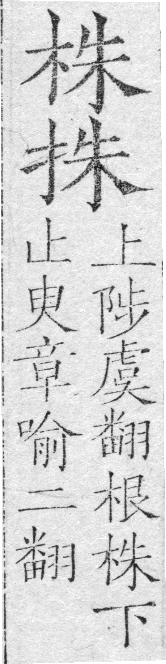 株
挗
上陟虞翻根株下
止臾章喻二翻